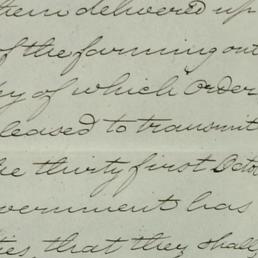 them delivered up
of the farming out
of which order
leased to transmit
the thirty first Octo
vernment has
ties that they shall